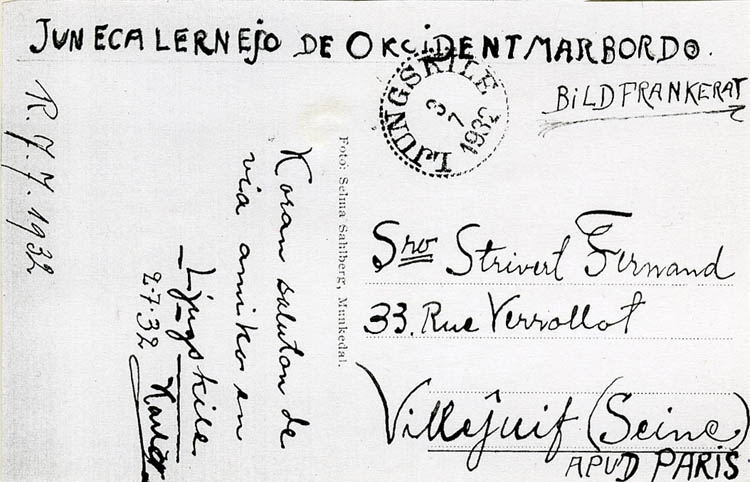 JUNECA LERNEJO DE OKCIDENTMARBORDO.
BILDFRANKERAT
LJUNGSKILE
3
7
1932
R. 7.7.1932
Koran saluton de
via amiko en
Ljugskile
2-7.32
Foto: Selma Sahlberg, Munkedal.
Sro Strivert Fernand
33. Rue Verrollot
Villejuif (Seine)
APUD PARIS